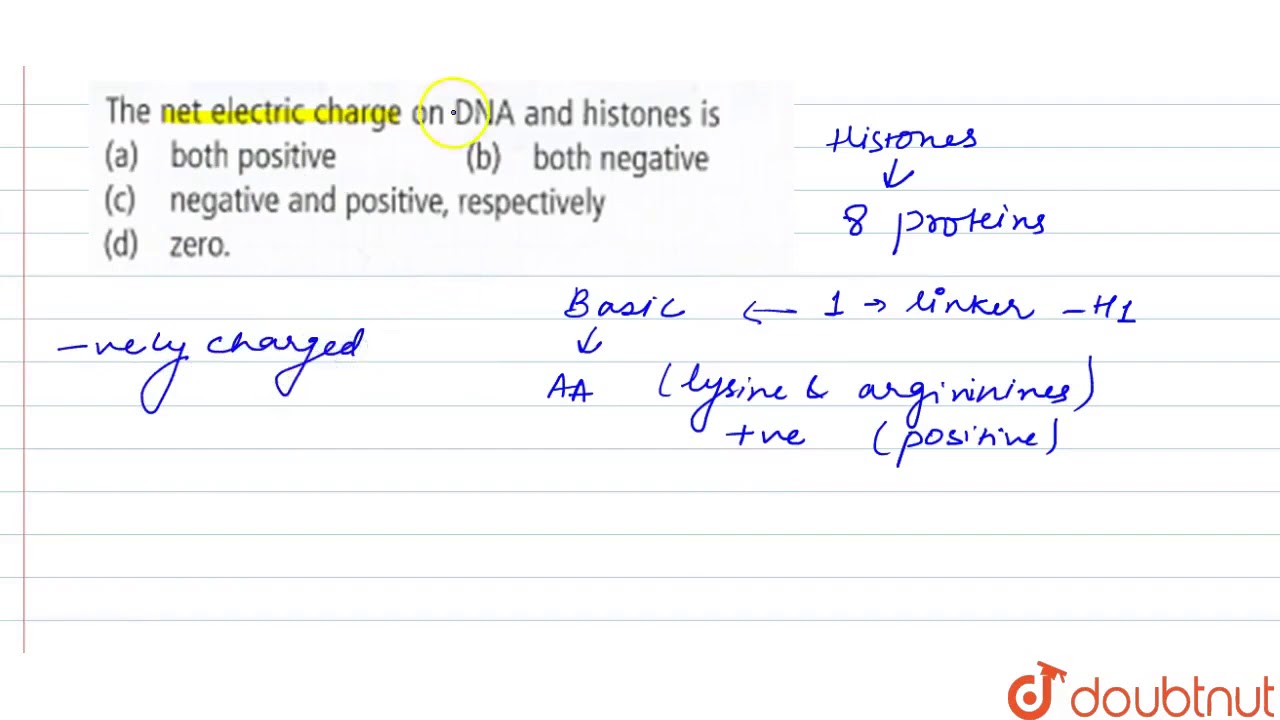 The net electric charge on DNA and histones is
(a) both positive (b) both negative
(c) negative and positive, respectively
(d) zero.
Histones
↓
8 proteins
Basic ← 1 → linker - H1
↓
AA (lysine & arginines)
+ve (positive)
-vely charged
doubtnut